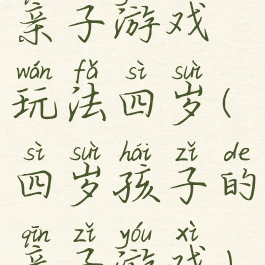 亲子游戏
wán fǎ sì suì
玩法四岁(
sì suì hái zǐ de
四岁孩子的
qīn zǐ yóu xì
亲子游戏)